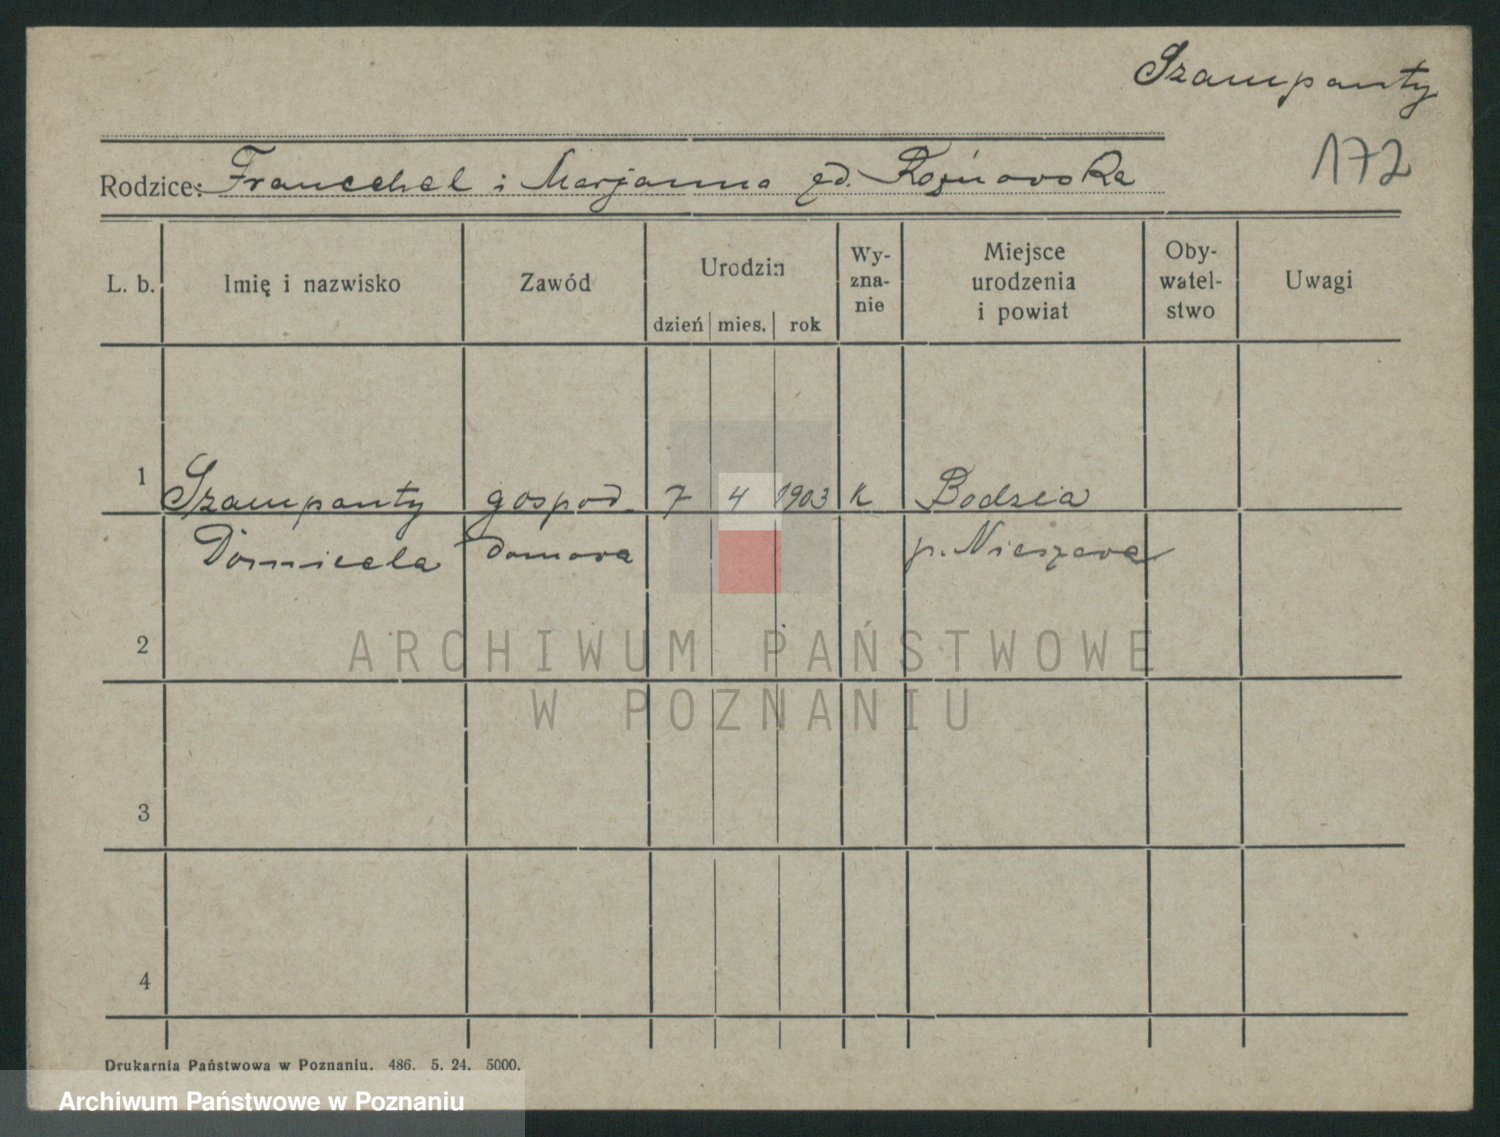 Szampanty
172
Rodzice: i Marjanna
L. b. Imię i nazwisko Zawód Urodzin dzień mies. rok Wy-zna-nie Miejsce urodzenia i powiat Oby-watel-stwo Uwagi
1 Szampanty gospod. 7 4 1903 k Bodzia
domowa p. Nieszawa
2
3
4
Drukarnia Państwowa w Poznaniu. 486. 5. 24. 5000.
ARCHIWUM PAŃSTWOWE
W POZNANIU
Archiwum Państwowe w Poznaniu